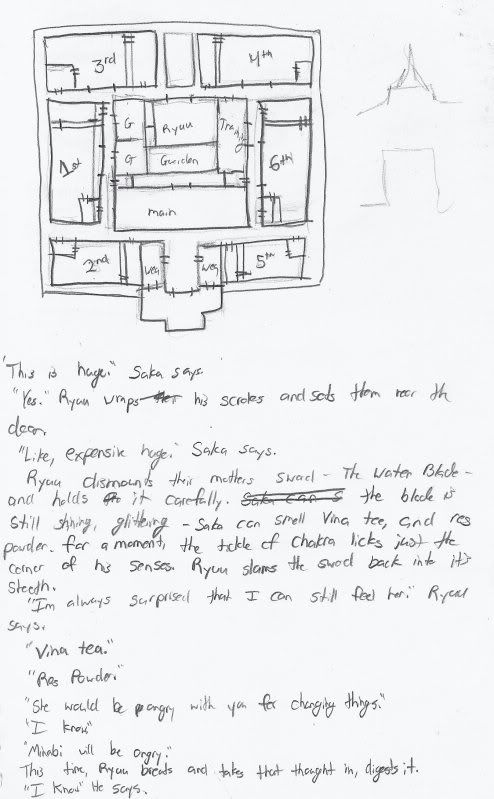 3rd
4th
G
Ryuu
Traing
1st
G
Garden
6th
main
2nd
weq
weq
5th
"This is huge." Saka says.
"Yes." Ryuu wraps his scroles and sets them near the
door.
"Like, expensive huge." Saka says.
Ryuu dismounts their mothers sword - The Water Blade -
and holds it carefully. Saka can s the blade is
still shining, glittering - Saka can smell Vina tea, and res
powder. For a moment, the tickle of chakra licks just the
corner of his senses. Ryuu slams the sword back into it's
sheeth.
"I'm always surprised that I can still feel her." Ryuu
says.
"Vina tea."
"Res Powder."
"She would be angry with you for changing things."
"I know"
"Minabi will be angry."
This time, Ryuu breats and takes that thought in, digests it.
"I know" He says.